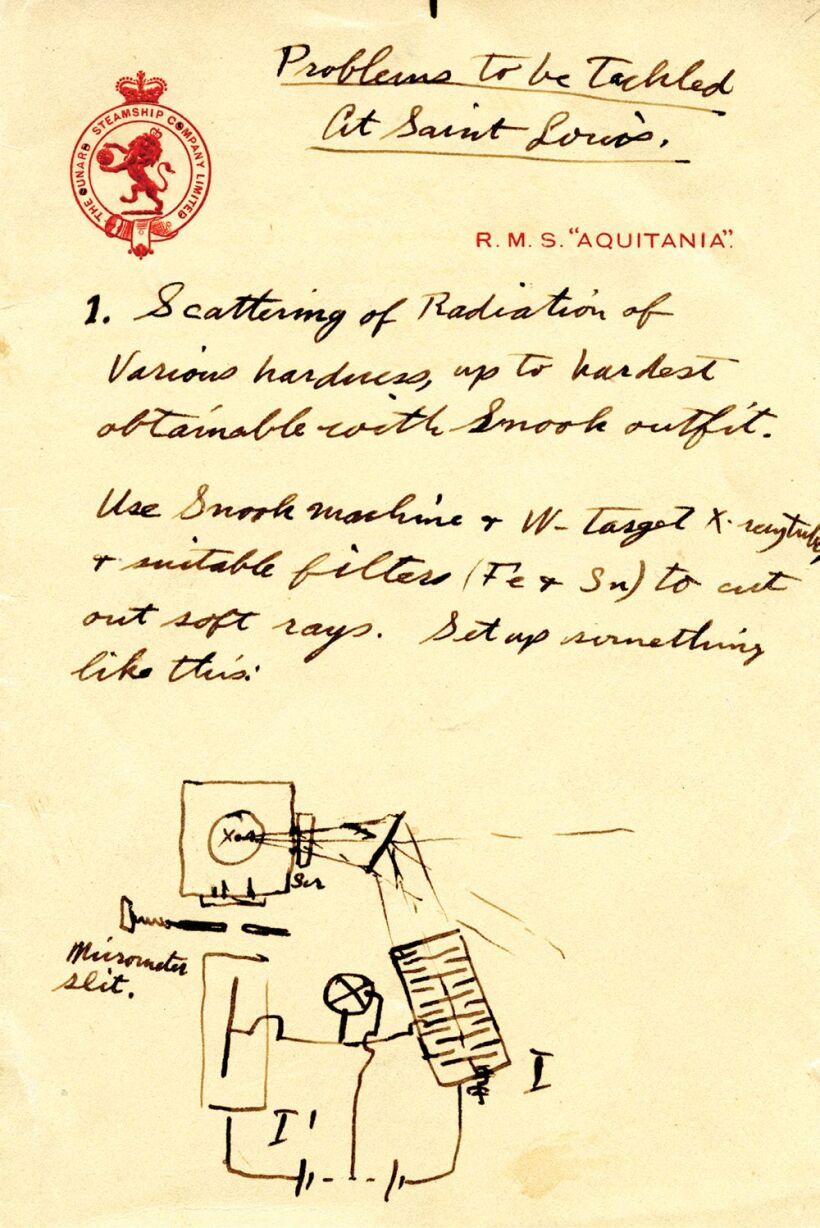 Problems to be Tackled
At Saint Louis.
THE CUNARD STEAMSHIP COMPANY LIMITED
R. M. S. "AQUITANIA".
1. Scattering of Radiation of
Various hardness, up to hardest
obtainable with Snook outfit.
Use Snook machine & W- target X-ray tube,
& suitable filters (Fe & Sn) to cut
out soft rays. Set up something
like this:
X
Micrometer
slit.
I
I'